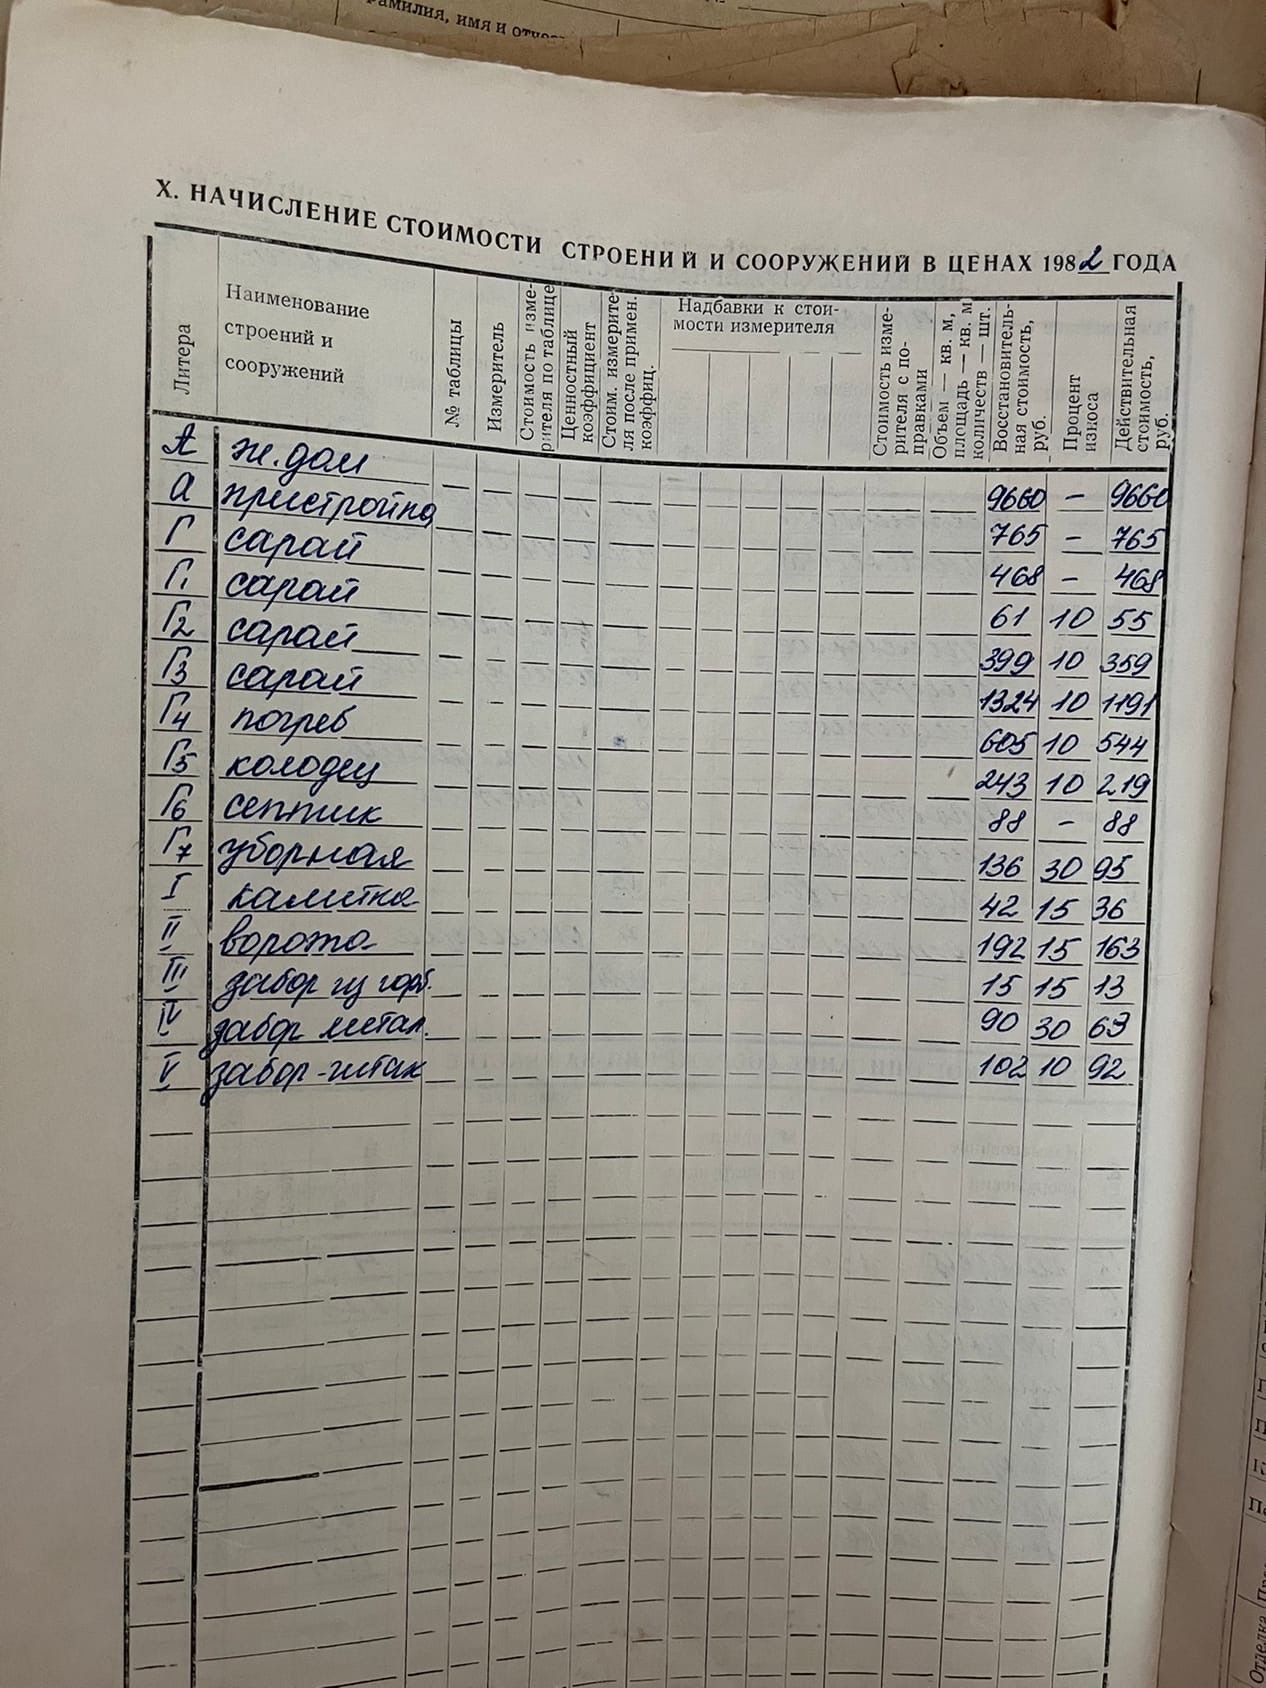 амилия, имя и отчес
X. НАЧИСЛЕНИЕ СТОИМОСТИ СТРОЕНИЙ И СООРУЖЕНИЙ В ЦЕНАХ 1982 ГОДА
Литера
Наименование
строений и
сооружений
№ таблицы
Измеритель
Стоимость изме-
рителя по таблице
Ценностный
коэффициент
Стоим. измерите-
ля после примен.
коэффиц.
Надбавки к стои-
мости измерителя
Стоимость изме-
рителя с по-
правками
Объем — кв. м,
площадь — кв. м
количеств — шт.
Восстановитель-
ная стоимость,
руб.
Процент
износа
Действительная
стоимость,
руб.
А ж. дом 9660 – 9660
а пристройка 765 – 765
Г сарай 468 – 468
Г1 сарай 61 10 55
Г2 сарай 399 10 359
Г3 сарай 1324 10 1191
Г4 погреб 605 10 544
Г5 колодец 243 10 219
Г6 септик 88 – 88
Г7 уборная 136 30 95
I калитка 42 15 36
II ворота 192 15 163
III забор гц горб. 15 15 13
IV забор метал. 90 30 63
V забор-штак 102 10 92
Отделка